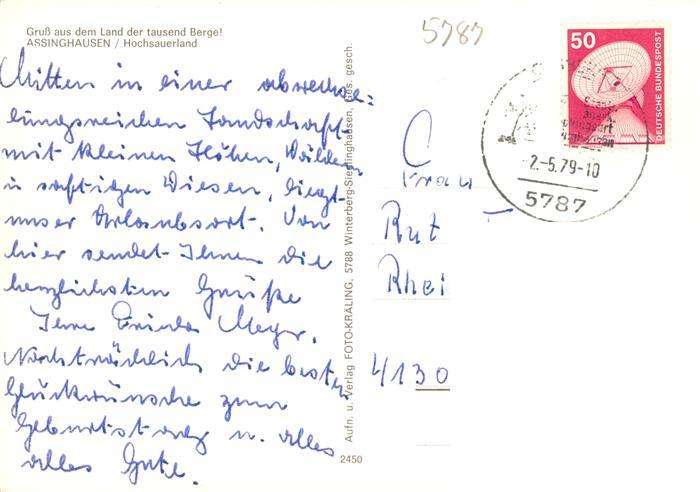 Gruß aus dem Land der tausend Berge!
ASSINGHAUSEN / Hochsauerland
Mitten in einer abwechs=
lungsreichen Landschaft
mit kleinen Höhen, Wäldern
u saftigen Wiesen, liegt
unser Urlaubsort. Von
hier sendet Ihnen die
herzlichsten Grüße
Ihre Frieda Meyer.
Nachträglich die besten
Glückwünsche zum
Geburtstag u. alles
alles Gute.
2450
Aufn. u. Verlag FOTO-KRÄLING, 5788 Winterberg-Siedlinghausen, Ges. gesch.
5787
50
DEUTSCHE BUNDESPOST
2.-5.79-10
5787
Frau
Rut
Rhei
4130